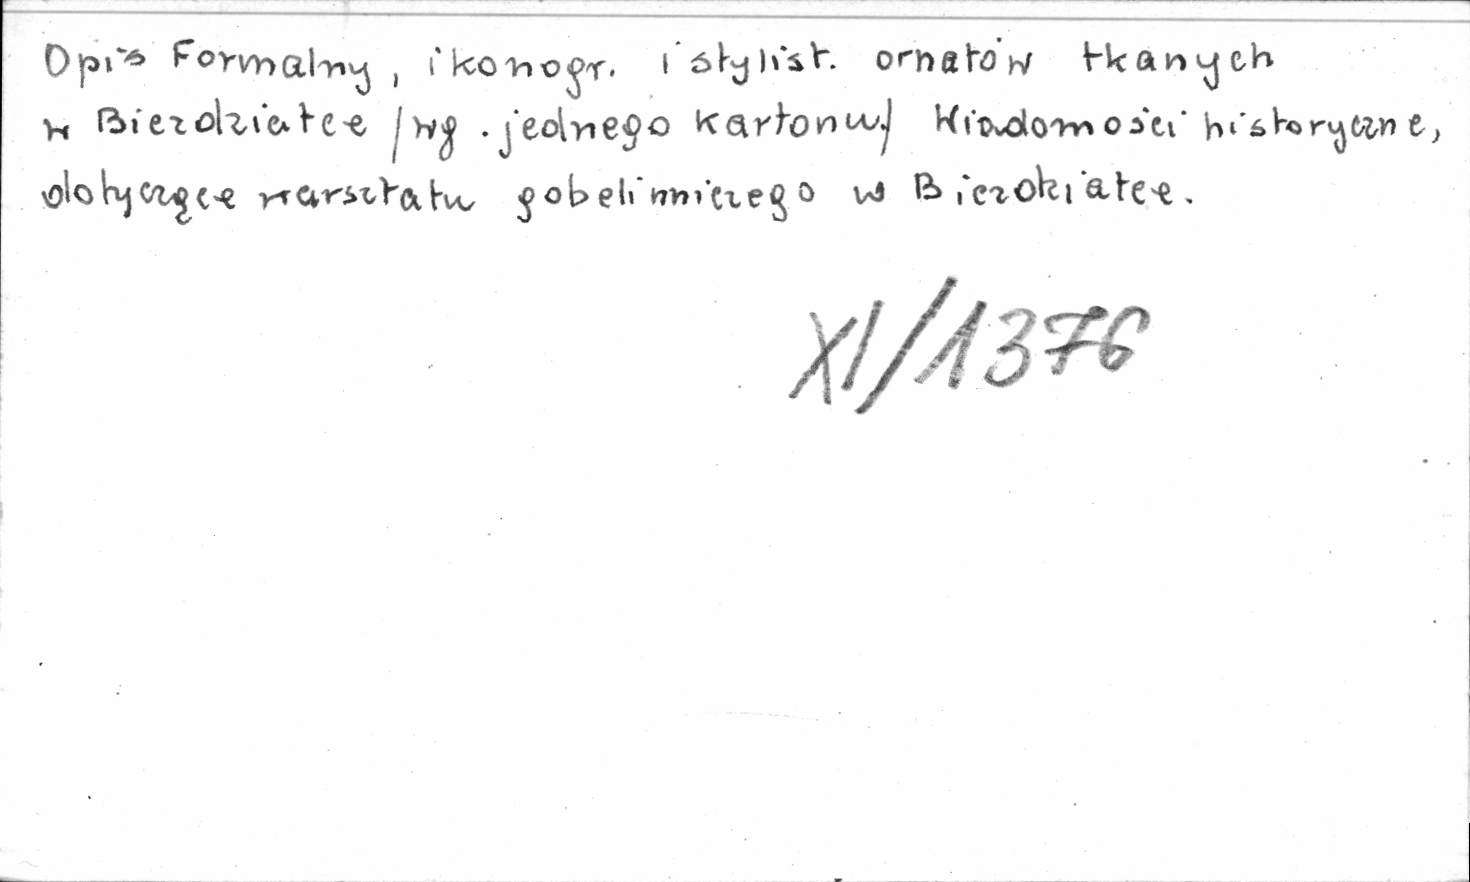 Opis Formalny, ikonogr. i stylist. ornatów tkanych
w Bieździatce /wg. jednego kartonu/ Wiadomości historyczne,
dotyczące warsztatu gobelinniczego w Bieździatce.
XI/1376